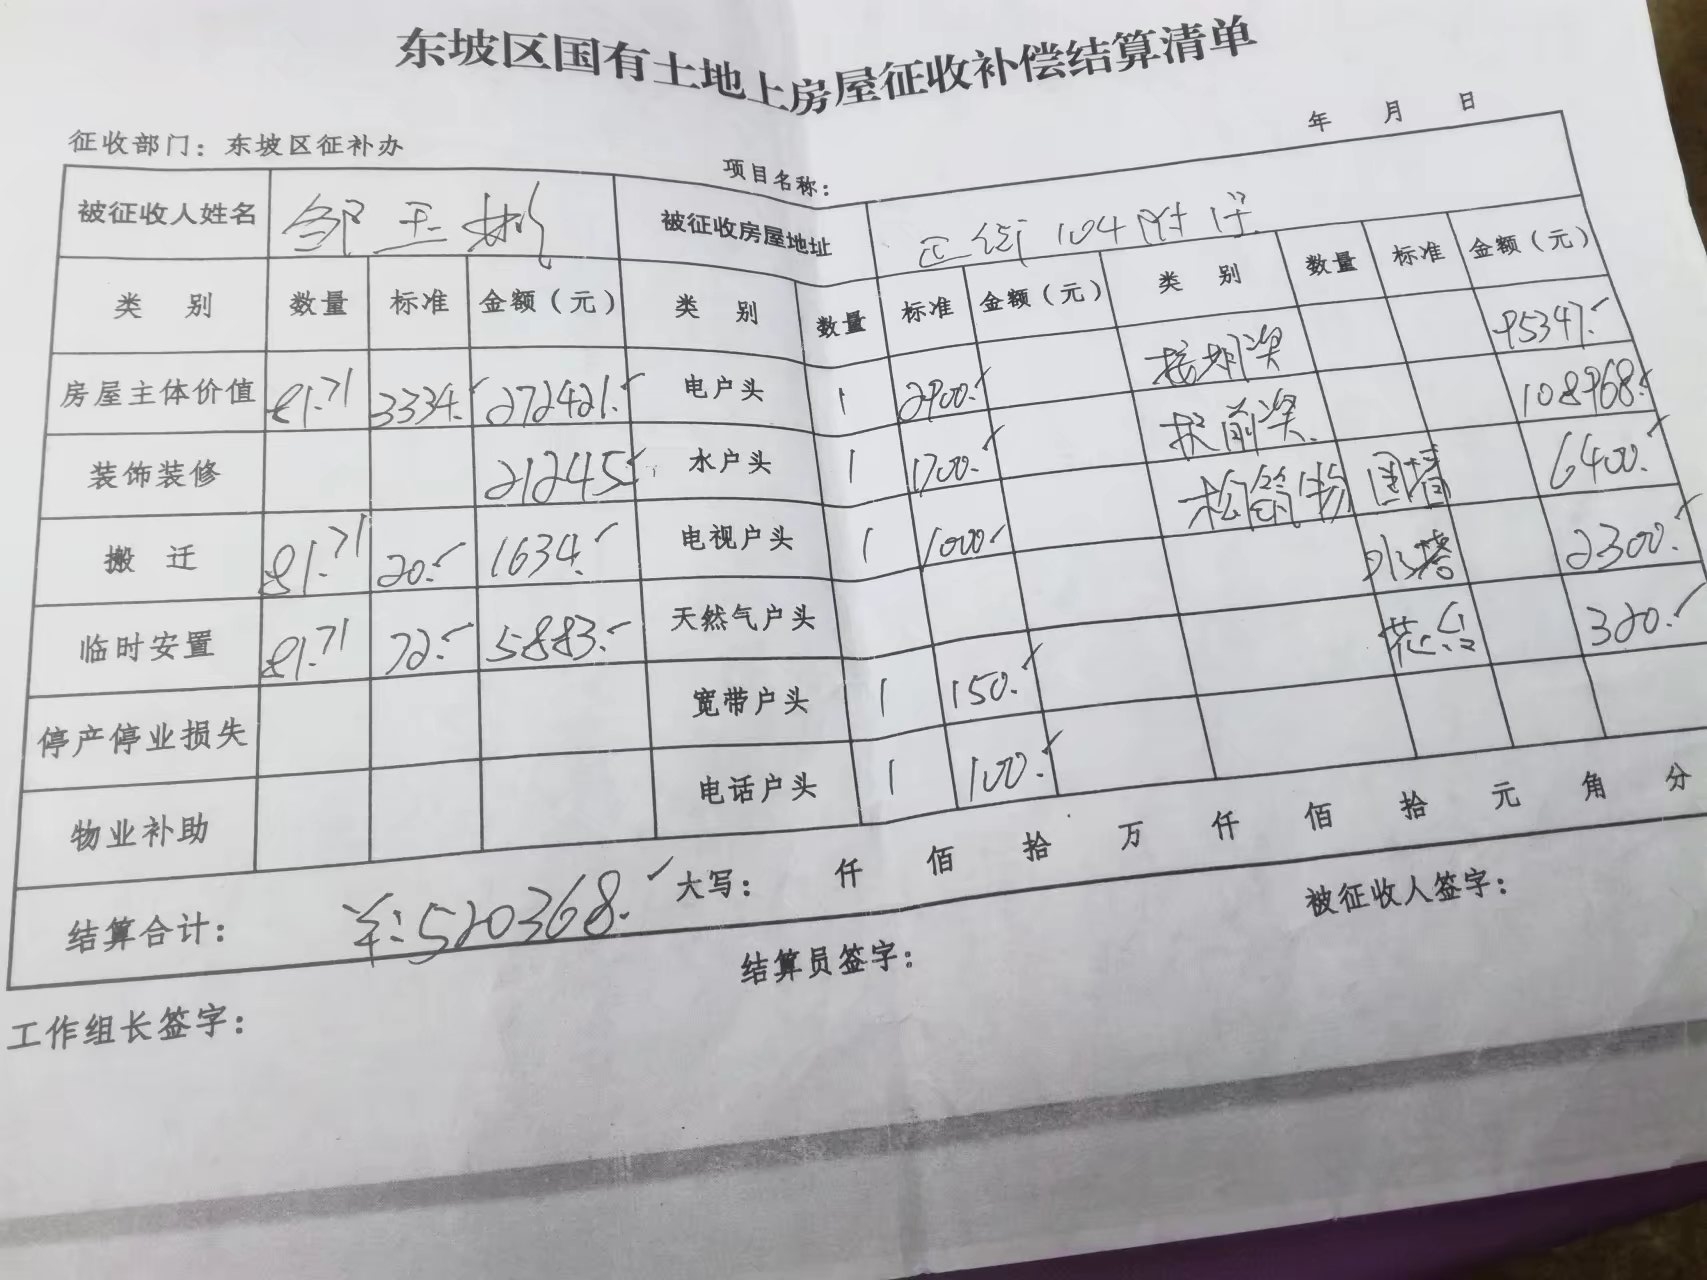 东坡区国有土地上房屋征收补偿结算清单
征收部门：东坡区征补办 项目名称： 年 月 日
被征收人姓名 邹玉 被征收房屋地址 正街104附1号
类 别 数量 标准 金额（元） 类 别 数量 标准 金额（元） 类 别 数量 标准 金额（元）
房屋主体价值 81.71 3334. 272421. 电户头 1 2900. 按期奖 95347.
装饰装修 21245 水户头 1 1700. 提前奖 108968.
搬 迁 81.71 20. 1634. 电视户头 1 1000. 构筑物 围墙 6400.
临时安置 81.71 72. 5883. 天然气户头 水塔 2300.
停产停业损失 宽带户头 1 150. 花台 320.
物业补助 电话户头 1 100.
结算合计： ¥:520368. 大写： 仟 佰 拾 万 仟 佰 拾 元 角 分
工作组长签字： 结算员签字： 被征收人签字：